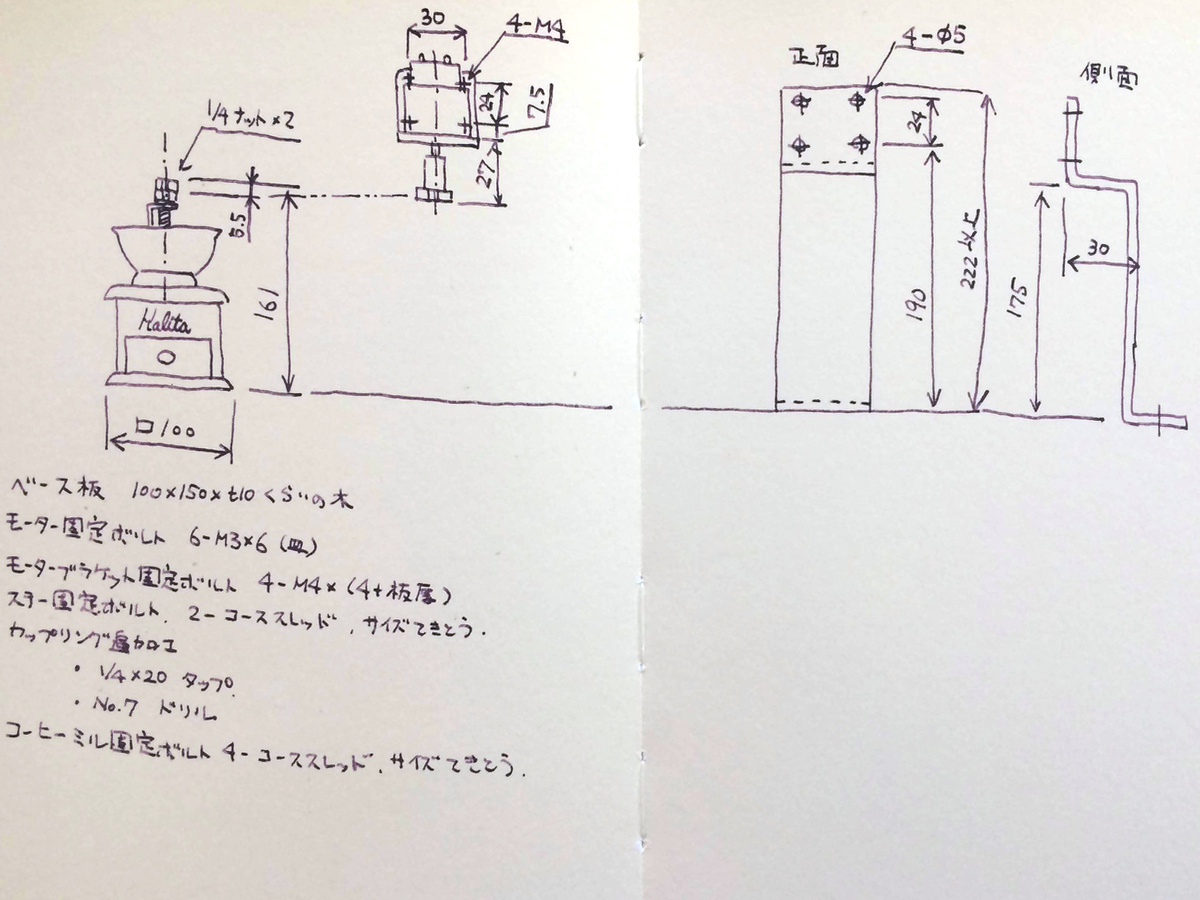 30
4-M4
24
7.5
27
1/4ナット×2
5.5
161
Kalita
□100
ベース板 100×150×t10くらいの木
モーター固定ボルト 6-M3×6 (皿)
モーターブラケット固定ボルト 4-M4×(4+板厚)
ステー固定ボルト 2-コーススレッド、サイズてきとう.
カップリング追加工
・1/4×20 タップ
・No.7 ドリル
コーヒーミル固定ボルト 4-コーススレッド、サイズてきとう.
正面
4-φ5
側面
24
222以上
190
175
30